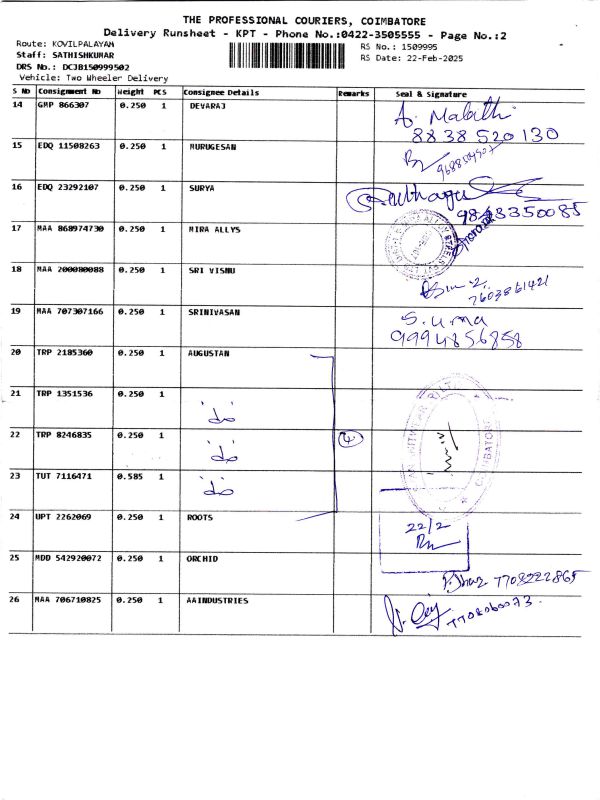 THE PROFESSIONAL COURIERS, COIMBATORE
Delivery Runsheet - KPT - Phone No.:0422-3505555 - Page No.:2
Route: KOVILPALAYAM
RS No.: 1509995
Staff: SATHISHKUMAR
RS Date: 22-Feb-2025
DRS No.: DCJB150999502
Vehicle: Two Wheeler Delivery
S No Consignment No Weight PCS Consignee Details Remarks Seal & Signature
14 GMP 866307 0.250 1 DEVARAJ
A. Malathi
8838520130
15 EDQ 11508263 0.250 1 MURUGESAN
16 EDQ 23292107 0.250 1 SURYA
17 MAA 868974730 0.250 1 MIRA ALLYS
18 MAA 200080088 0.250 1 SRI VISHU
7603861421
19 MAA 707307166 0.250 1 SRINIVASAN
S. uma
9994856858
20 TRP 2185360 0.250 1 AUGUSTAN
21 TRP 1351536 0.250 1
"do"
22 TRP 8246835 0.250 1
"do" 4
23 TUT 7116471 0.585 1
"do"
24 UPT 2262069 0.250 1 ROOTS
22/2
25 MDD 542920072 0.250 1 ORCHID
7708222865
26 MAA 706710825 0.250 1 AAINDUSTRIES
7708060073